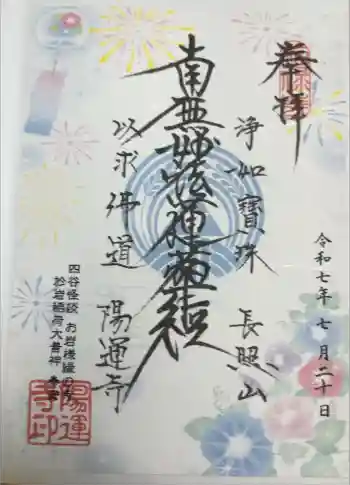 奉拝
令和七年 七月二十日
浄如寶珠 長照山
南無妙法蓮華経
以求佛道 陽運寺
四谷怪談 お岩様縁の寺
於岩稲荷大善神
陽運寺印